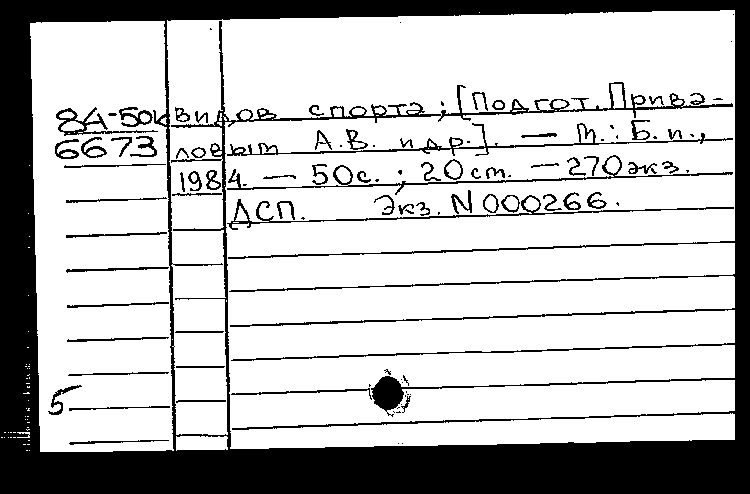 84-50к видов спорта; [Подгот. Прива-
6673 ловым А.В. и др.]. — М.: Б.и.,
1984. — 50с.; 20 см. — 270 экз.
ДСП. Экз. N 000266.
5